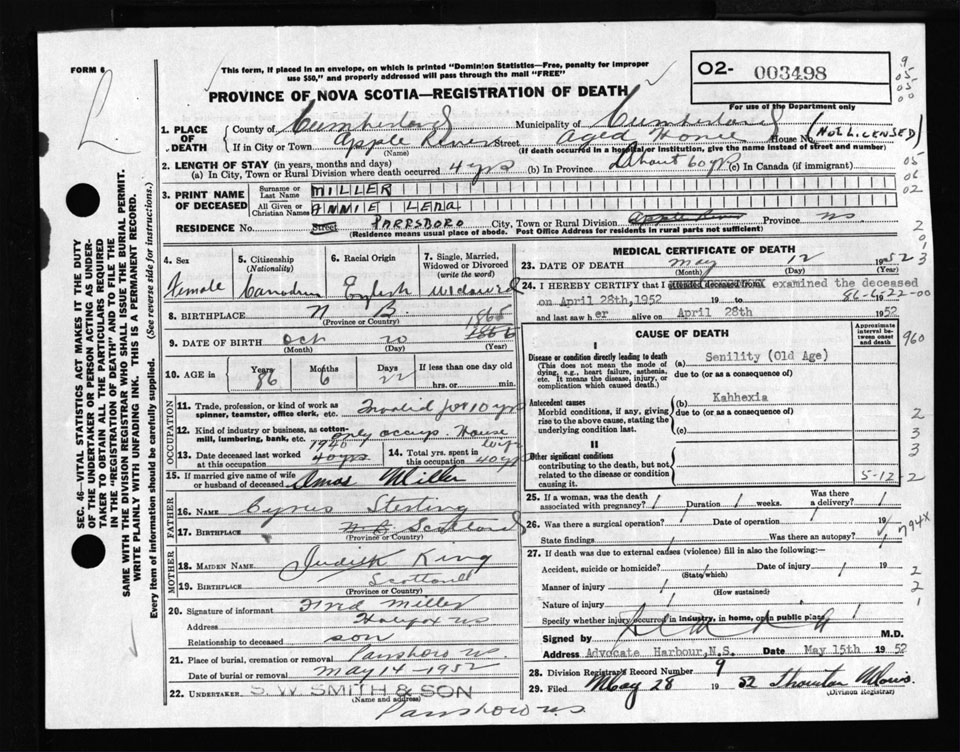 FORM 6
This form, if placed in an envelope, on which is printed "Dominion Statistics—Free, penalty for improper
use $50," and properly addressed will pass through the mail "FREE"
PROVINCE OF NOVA SCOTIA—REGISTRATION OF DEATH
O2- 003498
For use of the Department only
9
05
05
00
1. PLACE OF DEATH
County of Cumberland Municipality of Cumberland
If in City or Town Apple River Street Aged Home House No. (Not Licensed)
(Name) (If death occurred in a hospital or institution, give name instead of street and number)
2. LENGTH OF STAY (in years, months and days)
(a) In City, Town or Rural Division where death occurred 4 yrs (b) In Province About 60 yrs (c) In Canada (if immigrant)
05
06
02
3. PRINT NAME OF DECEASED
Surname or Last Name MILLER
All Given or Christian Names ANNIE LENA
RESIDENCE No. Street PARRSBORO City, Town or Rural Division Apple River Province NS
(Residence means usual place of abode. Post Office Address for residents in rural parts not sufficient)
SEC. 46—VITAL STATISTICS ACT MAKES IT THE DUTY
OF THE UNDERTAKER OR PERSON ACTING AS UNDER-
TAKER TO OBTAIN ALL THE PARTICULARS REQUIRED
IN THE "REGISTRATION OF DEATH" AND TO FILE THE
SAME WITH THE DIVISION REGISTRAR WHO SHALL ISSUE THE BURIAL PERMIT.
WRITE PLAINLY WITH UNFADING INK. THIS IS A PERMANENT RECORD.
Every item of information should be carefully supplied. (See reverse side for instructions.)
4. Sex
Female
5. Citizenship
(Nationality)
Canadian
6. Racial Origin
English
7. Single, Married,
Widowed or Divorced
(write the word)
Widowed
8. BIRTHPLACE N B.
(Province or Country)
1865
9. DATE OF BIRTH Oct 20 1866
(Month) (Day) (Year)
10. AGE in
Years 86
Months 6
Days 22
If less than one day old
hrs. or min.
OCCUPATION
11. Trade, profession, or kind of work as
spinner, teamster, office clerk, etc. Invalid for 10 yrs
12. Kind of industry or business, as cotton-
mill, lumbering, bank, etc. only occup. House wife
13. Date deceased last worked
at this occupation 1940 40 yrs
14. Total yrs. spent in
this occupation 40 yrs
15. If married give name of wife
or husband of deceased Amos Miller
FATHER
16. NAME Cyrus Sterling
17. BIRTHPLACE N B Scotland
(Province or Country)
MOTHER
18. MAIDEN NAME Judith King
19. BIRTHPLACE Scotland
(Province or Country)
20. Signature of informant Fred Miller
Address Halifax NS
Relationship to deceased son
21. Place of burial, cremation or removal Parrsboro NS.
Date of burial or removal May 14 - 1952
22. UNDERTAKER S. W. SMITH & SON
(Name and address)
Parrsboro NS.
MEDICAL CERTIFICATE OF DEATH
23. DATE OF DEATH May 12 1952
(Month) (Day) (Year)
24. I HEREBY CERTIFY that I attended deceased from examined the deceased
on April 28th,1952 19 to 19
86-6-22-00
and last saw her alive on April 28th 1952
CAUSE OF DEATH
Approximate
interval be-
tween onset
and death
I
Disease or condition directly leading to death
(This does not mean the mode of
dying, e.g., heart failure, asthenia,
etc. It means the disease, injury, or
complication which caused death.)
(a) Senility (Old Age)
due to (or as a consequence of)
Antecedent causes
Morbid conditions, if any, giving
rise to the above cause, stating the
underlying condition last.
(b) Kahhexia
due to (or as a consequence of)
(c)
II
Other significant conditions
contributing to the death, but not
related to the disease or condition
causing it.
5-12
25. If a woman, was the death
associated with pregnancy? Duration weeks. Was there
a delivery?
26. Was there a surgical operation? Date of operation 19
State findings Was there an autopsy?
27. If death was due to external causes (violence) fill in also the following:—
Accident, suicide or homicide? Date of injury 19
(State which)
Manner of injury
(How sustained)
Nature of injury
Specify whether injury occurred in industry, in home, or in public place
Signed by M.D.
Address Advocate Harbour,N.S. Date May 15th 1952
28. Division Registrar's Record Number 9
29. Filed May 28 19 52 Thornton
(Division Registrar)
2
0
1
3
2
960
2
3
3
2
794X
2
2
1